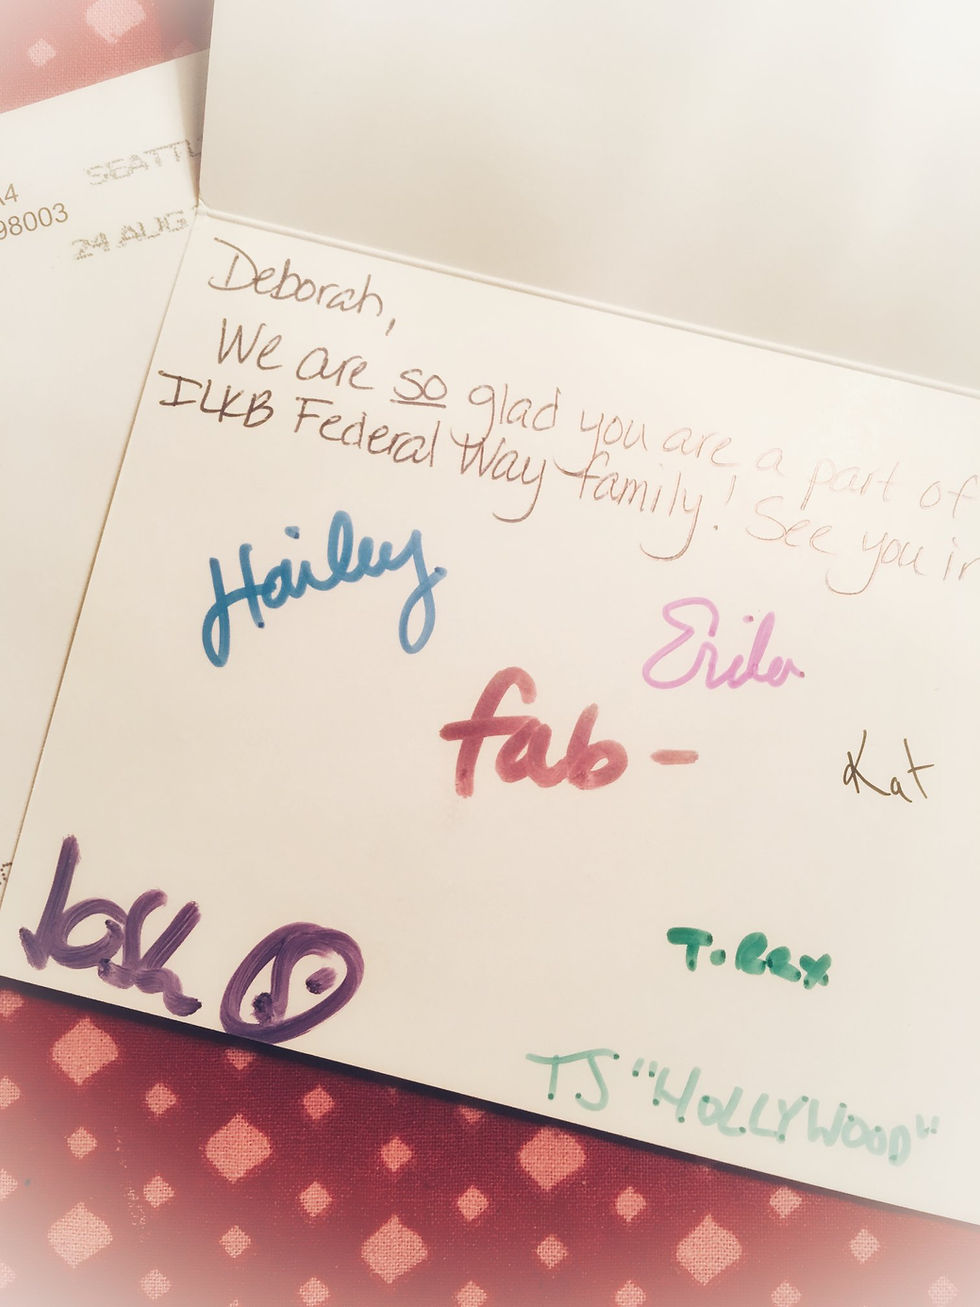 SEATTL
A4
98003
24 AUG
Deborah,
We are so glad you are a part of
ILKB Federal Way family! See you in
Hailey
Erika
fab -
Kat
Josh
T.Rex
TJ "HOLLYWOOD"